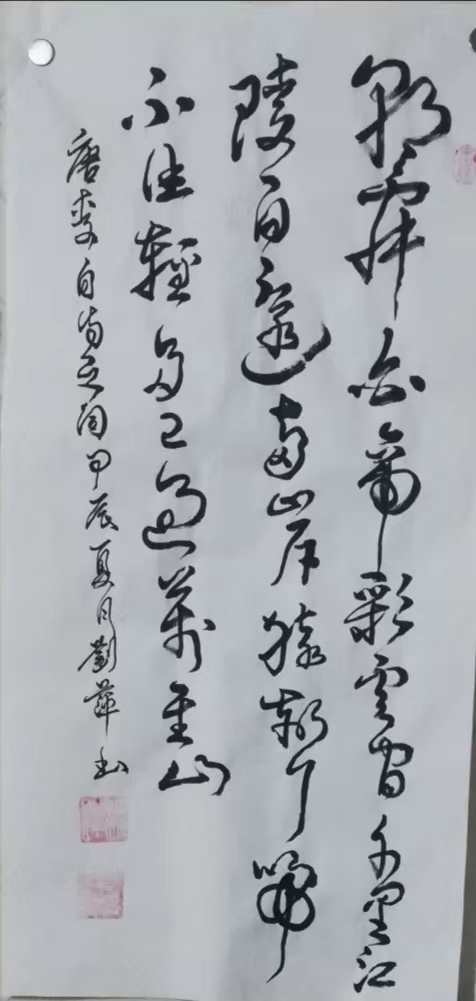 朝辭白帝彩雲間千里江
陵一日還兩岸猿聲啼
不住輕舟已過萬重山
唐李白 甲辰夏月劉萍書